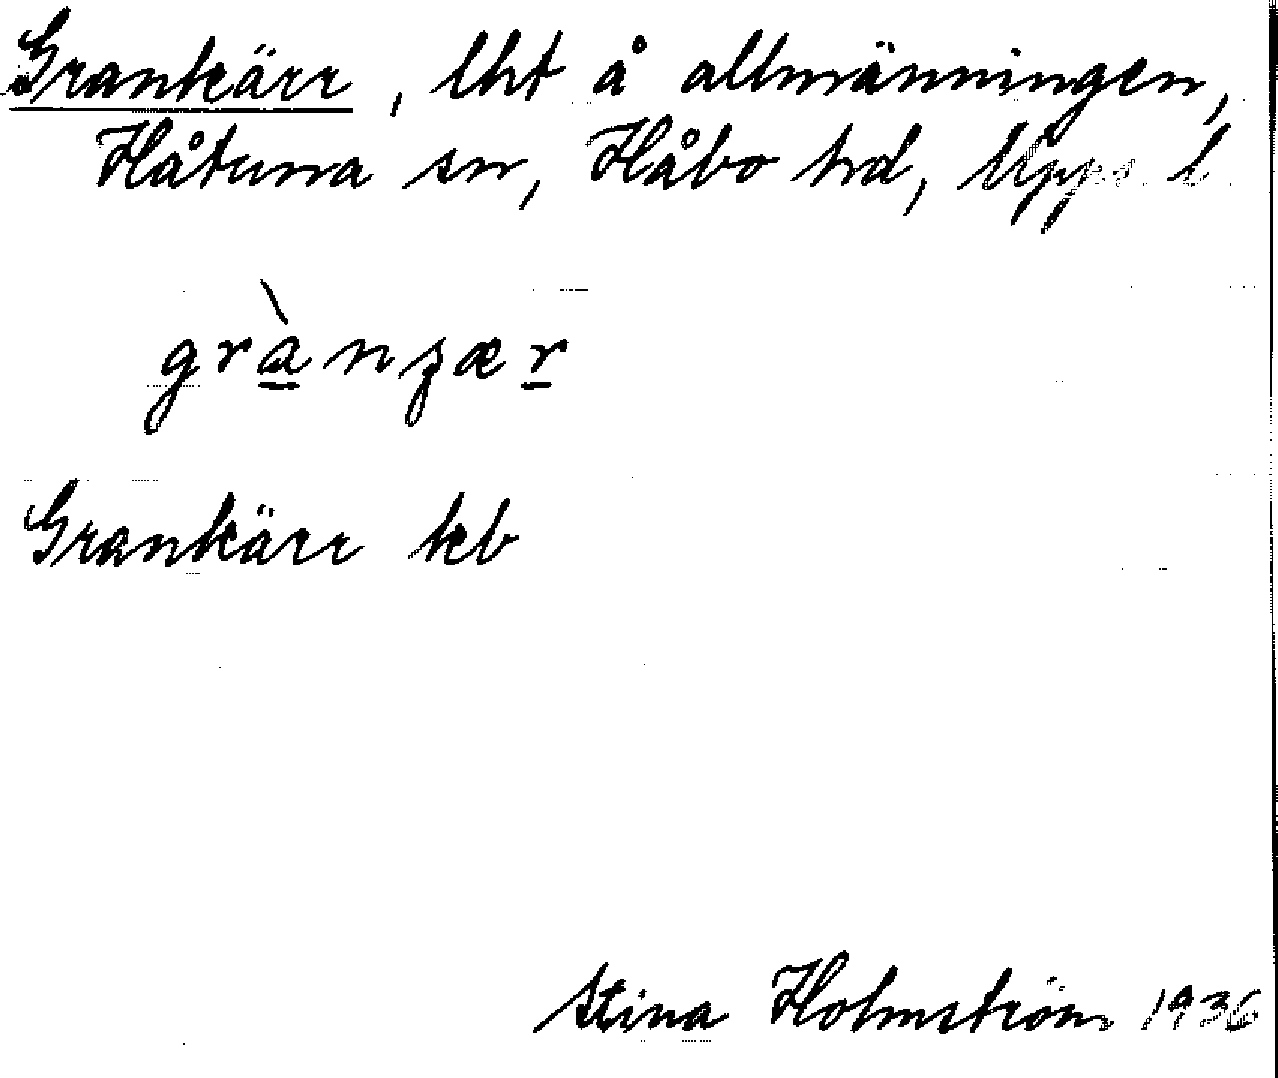 Grankärr, lht å allmänningen,
Håtuna sn, Håbo hd, Upps l
grànʒær
Grankärr kb
Stina Holmström 1936